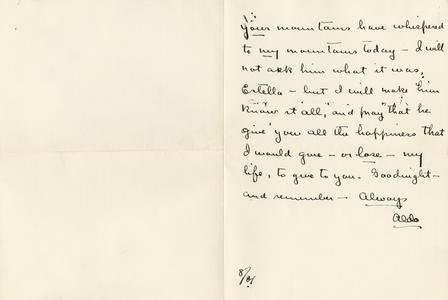 Your mountains have whispered
to my mountains today - I will
not ask him what it was,
Estella - but I will make him
know it all, and pray that he
give you all the happiness that
I would gave - or lose - my
life, to give to you. Goodnight -
and remember - Always
Aldo